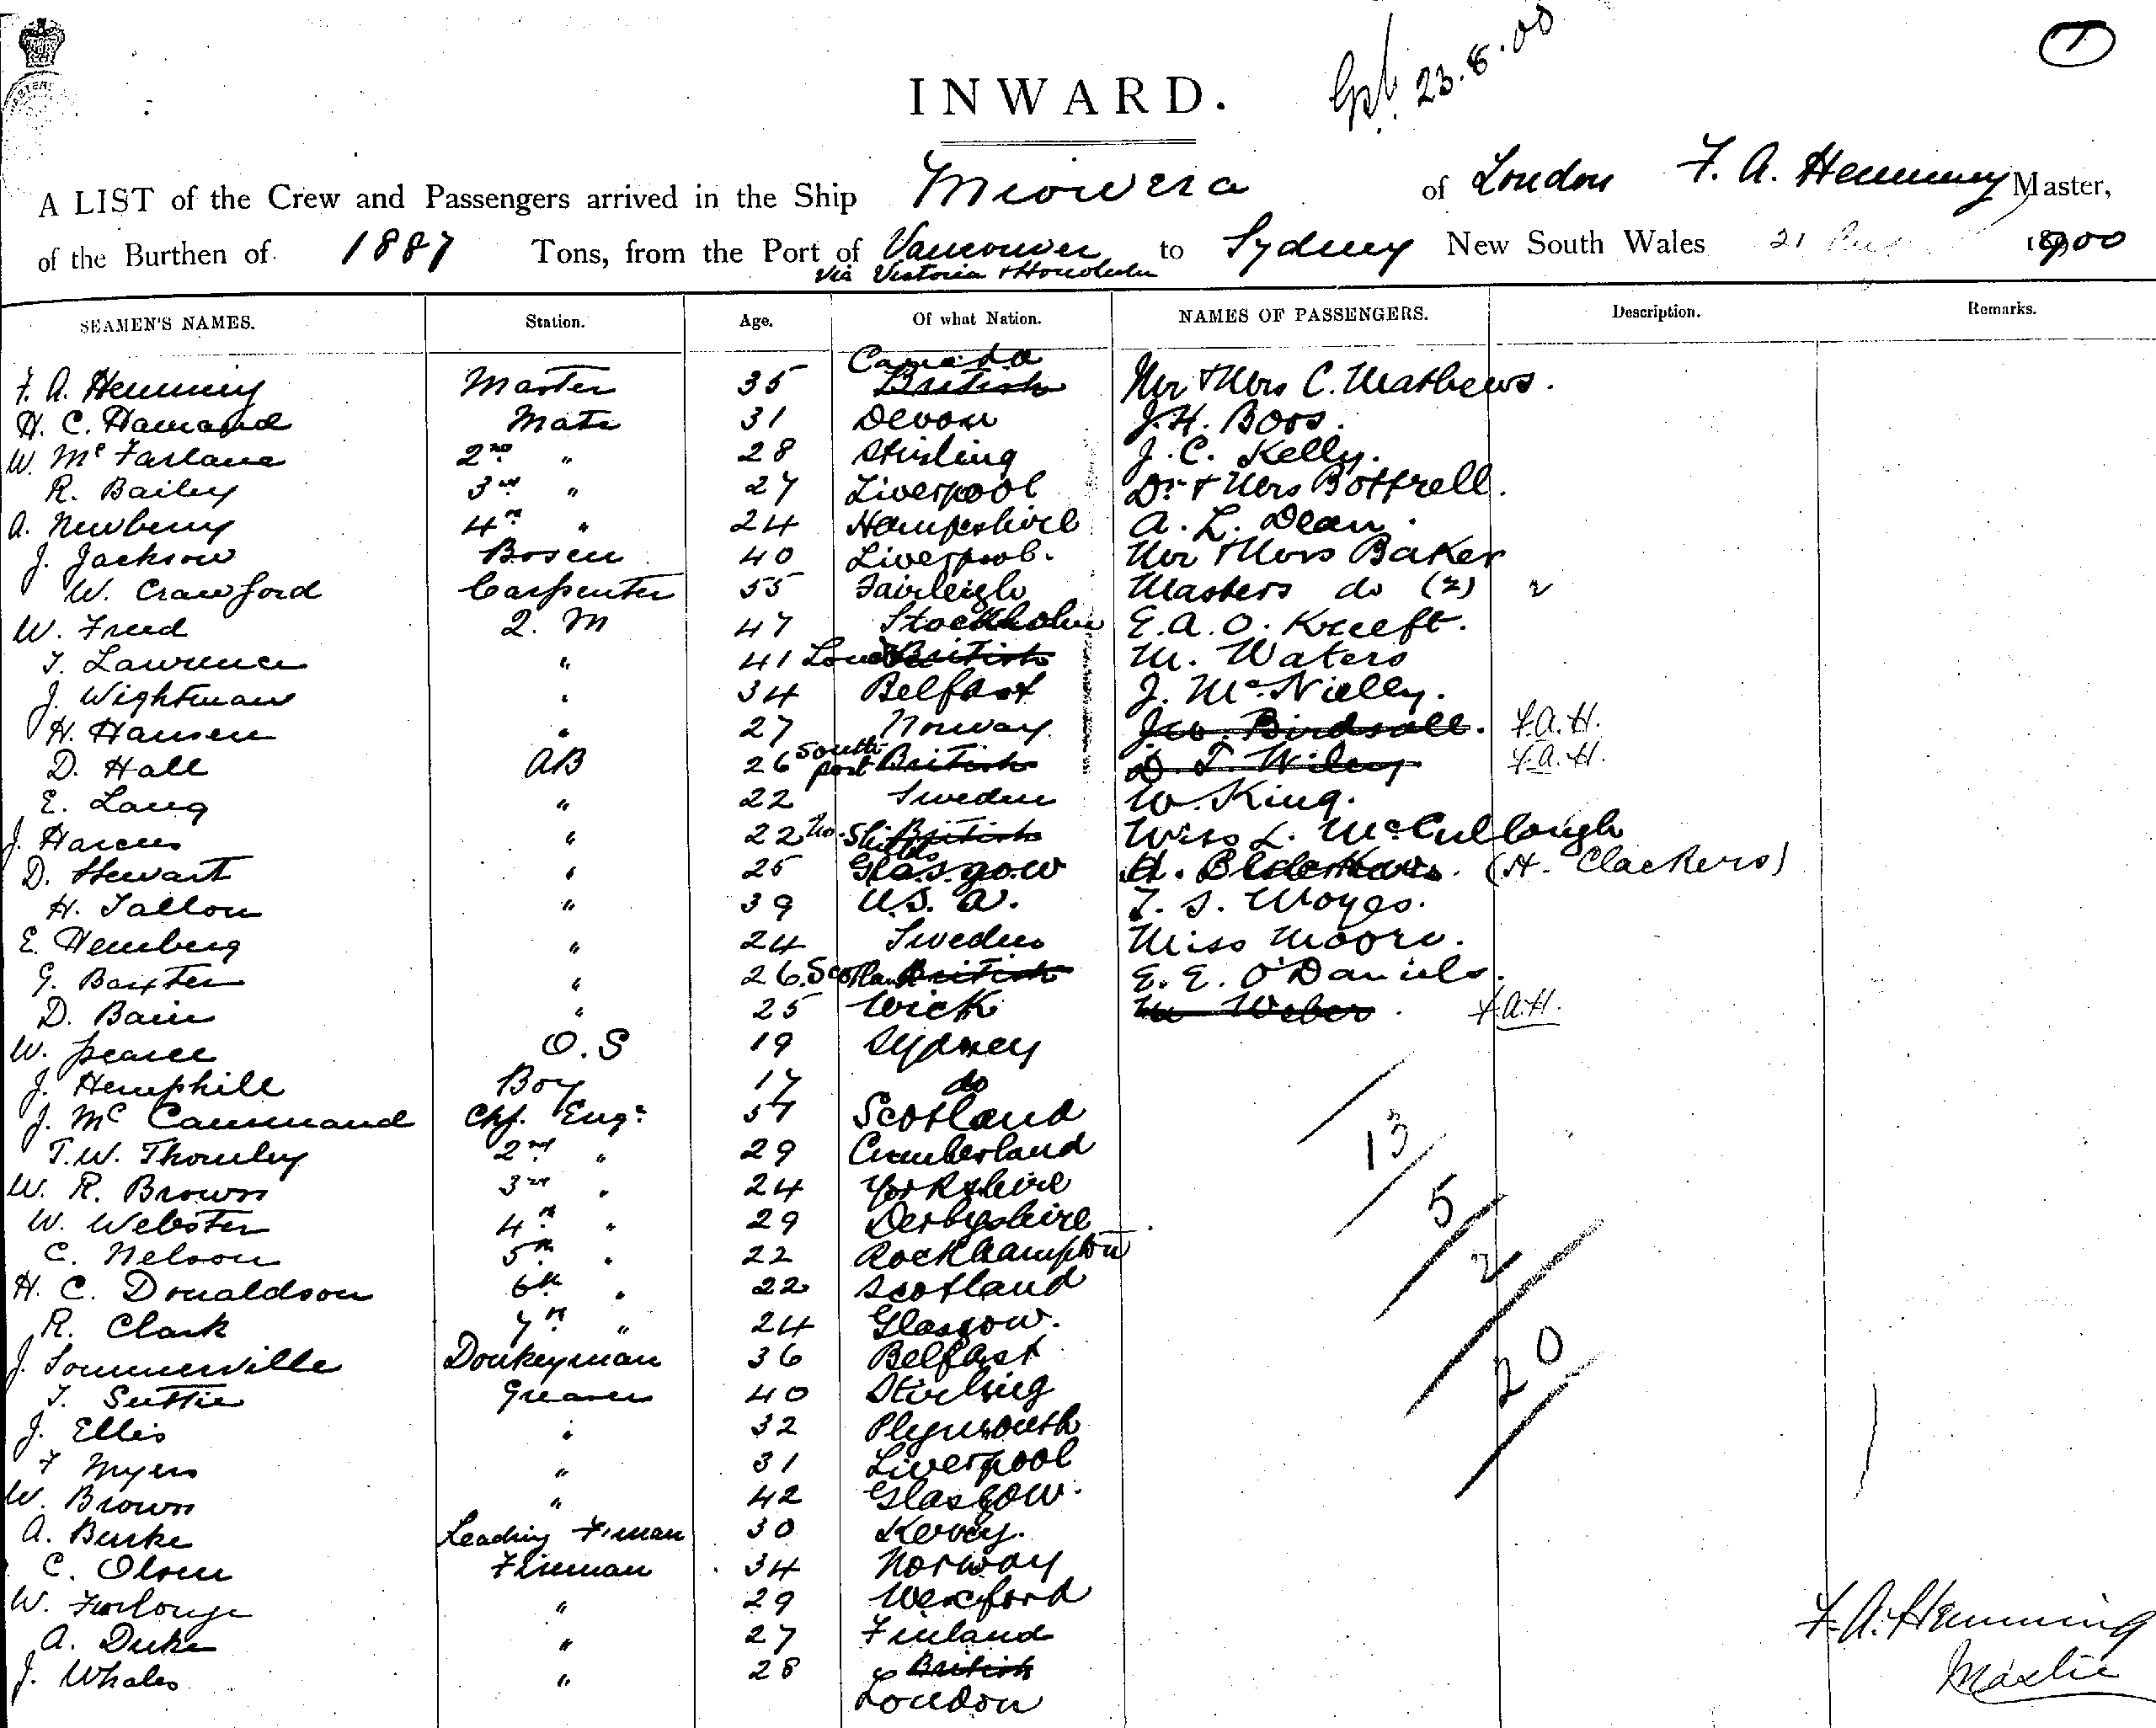 INWARD.
23.8.00
1
A LIST of the Crew and Passengers arrived in the Ship Miowera of London F. A. Hemming Master,
of the Burthen of 1887 Tons, from the Port of Vancouver to Sydney New South Wales 21 Aug 1900
Via Victoria & Honolulu
SEAMEN'S NAMES. Station. Age. Of what Nation. NAMES OF PASSENGERS. Description. Remarks.
Canada
F. A. Hemming Master 35 British Mr & Mrs C. Mathews.
H. C. Mate 31 Devon J. H. Boos.
W. McFarlane 2nd " 28 Stirling J. C. Kelly.
R. Bailey 3rd " 27 Liverpool Dr & Mrs Bottrell.
A. Newberry 4th " 24 Hampshire A. L. Dean.
J. Jackson Bosen 40 Liverpool. Mr & Mrs Baker
W. Crawford Carpenter 55 Fairleigh Masters do (2) 2
W. Freed Q. M 47 Stockholm E. A. O. Kreeft.
T. Lawrence " 41 London British M. Waters
J. Wightman " 34 Belfast J. McNielly.
H. Hansen " 27 Norway Geo. Birdsall. F.A.H.
D. Hall AB 26 South port British D. T. Wiley F.A.H.
E. Lang " 22 Sweden W. King.
J. Harcus " 22 No. Shields British Miss L. McCullough
D. Stewart " 25 Glasgow H. (H. Clackers)
H. Tallon " 39 U.S.A. T. S. Moyes.
E. Hemberg " 24 Sweden Miss Moore.
G. Baxter " 26. Scotland British E. E. O'Daniels.
D. Bain " 25 Wick M Weber. F.A.H.
W. Pearce O.S 19 Sydney
J. Hemphill Boy 17 do
J. McCammand Chf. Engr 57 Scotland
T. W. Thornley 2nd " 29 Cumberland
W. R. Brown 3rd " 24 Yorkshire
W. Webster 4th " 29 Derbyshire
C. Nelson 5th " 22 Rockhampton
H. C. Donaldson 6th " 22 Scotland
R. Clark 7th " 24 Glasgow.
J. Sommerville Donkeyman 36 Belfast
T. Suttie Greaser 40 Stirling
J. Ellis " 32 Plymouth
F Myers " 31 Liverpool
W. Brown " 42 Glasgow.
A. Burke Leading Fireman 30
C. Olsen Fireman 34 Norway
W. Furlonge " 29 Wexford
A. Duke " 27 Finland
J. Whales " 28 British
London
13
5
2
20
F. A. Hemming
Master